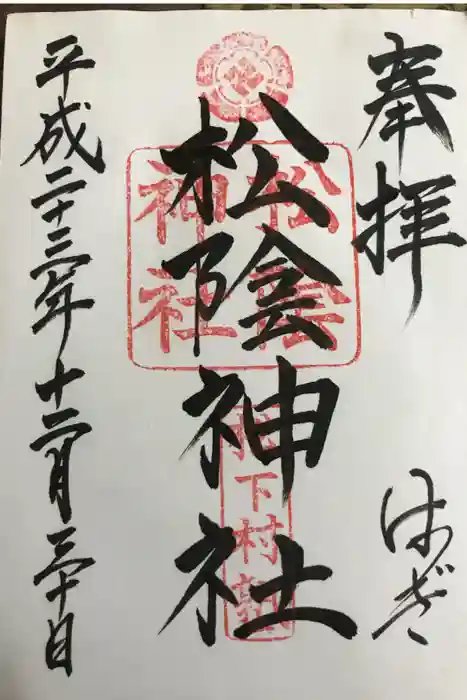 奉拝
はぎ
松陰神社
松陰神社
松下村塾
平成二十三年十二月三十日